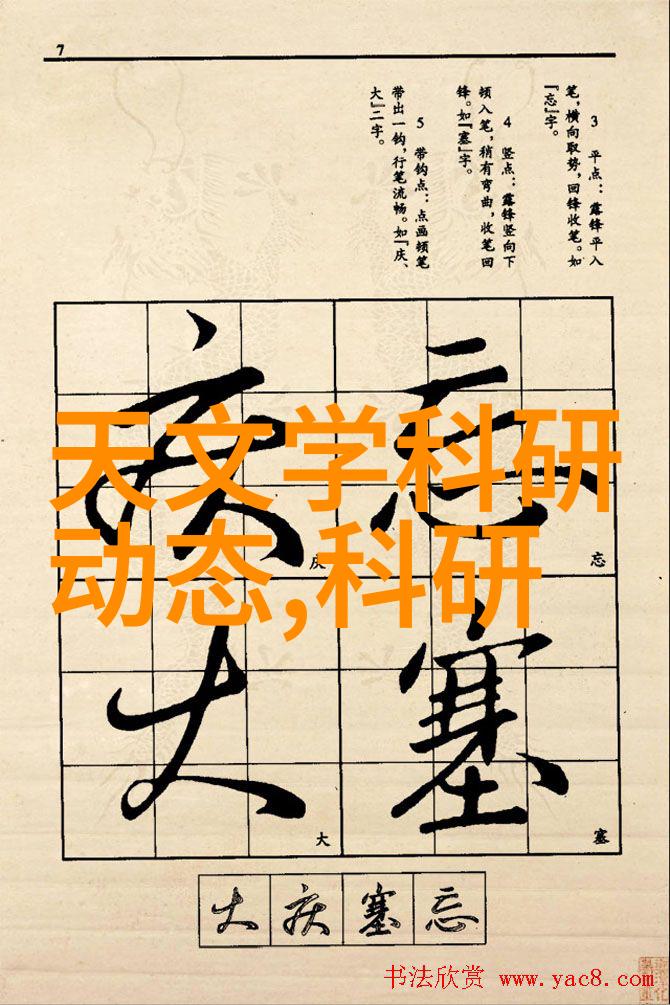 7
3 平点：露锋平入
笔，横向取势，回锋收笔。如
『忘』字。
4 竖点：露锋竖向下
顿入笔，稍有弯曲，收笔回
锋。如『塞』字。
5 带钩点：点画顿笔
带出一钩，行笔流畅。如『庆、
大』二字。
天文学科研
动态,科研
忘
庆
忘
庆
塞
大
塞
大
大庆塞忘
书法欣赏 www.yac8.com